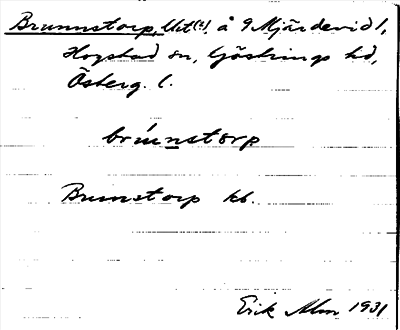 Brunnstorp, Utt(?), å 9 Mjärdevid 1,
Hogstad sn, Göstrings hd,
Österg. l.
brúnnstorp
Brunstorp kb.
Erik Alm 1931